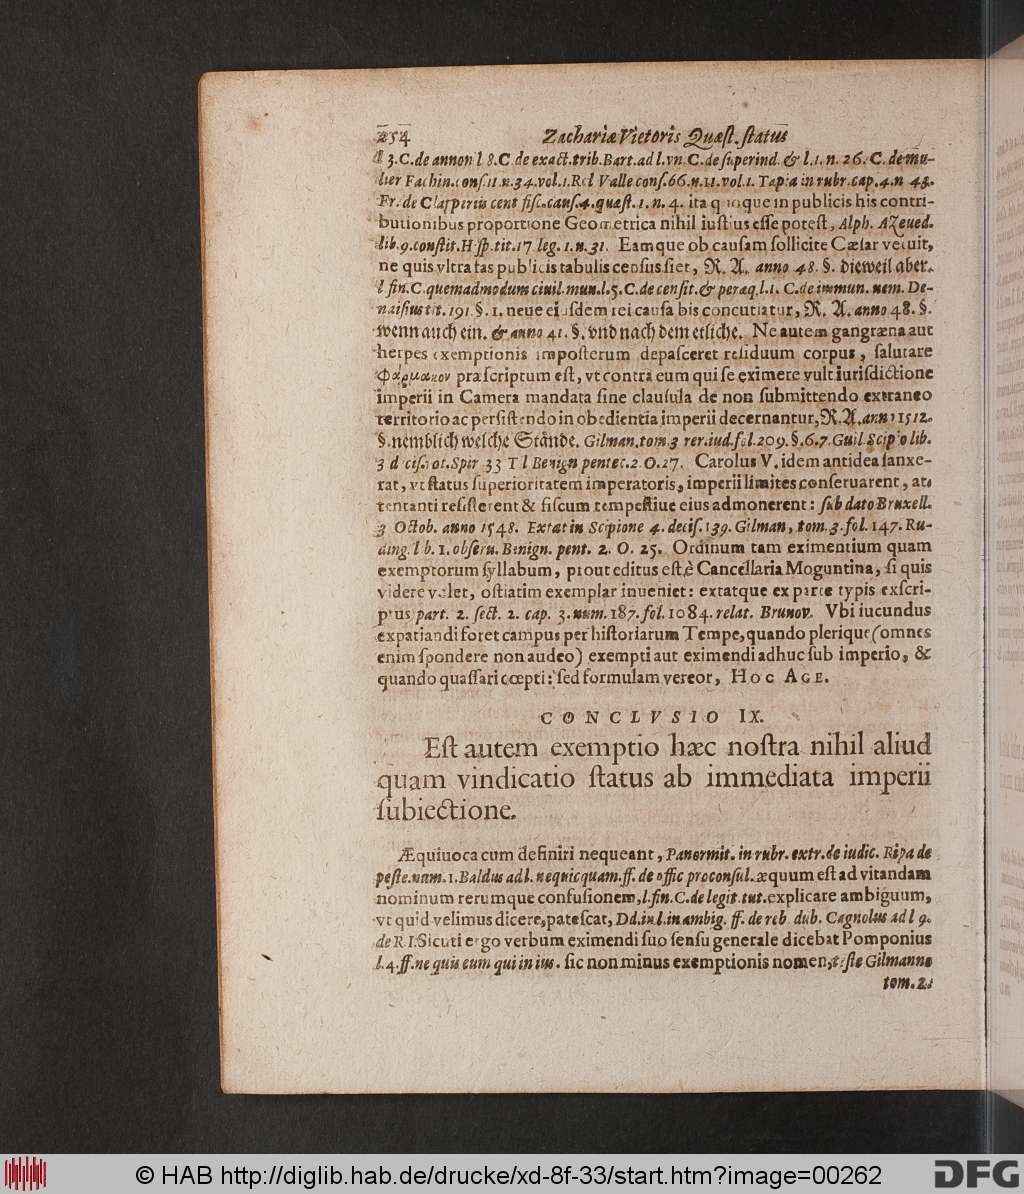 254 Zachariæ Vietoris Quæſt. ſtatus
l 3. C. de annon l 8. C. de exact. trib. Bart. ad l. vn. C. de ſuperind. & l. 1. n. 26. C. de mu-
lier Fachin. conſ. 11. n. 34. vol. 1. Rol Valle conſ. 66. n. 11. vol. 1. Tapia in rubr. cap. 4. n 43.
Fr. de Claſperiis cent fiſc. cauſ. 4. quæſt. 1. n. 4. ita quoque in publicis his contri-
butionibus proportione Geometrica nihil iuſtius eſſe poteſt, Alph. Azeued.
lib. 9. conſtit. Hſp. tit. 17 leg. 1. n. 31. Eamque ob cauſam ſollicite Cæſar vetuit,
ne quis vltra tas publicis tabulis cenſus fiet, R. A. anno 48. §. dieweil aber.
l fin. C. quemadmodum ciuil. mun. l. 5. C. de cenſit. & peræq. l. 1. C. de immun. nem. De-
naiſius tit. 191. §. 1. neue eiuſdem rei cauſa bis concutiatur, R. A. anno 48. §.
wenn auch ein. & anno 41. §. vnd nach dem etliche. Ne autem gangræna aut
herpes exemptionis impoſterum depaſceret reſiduum corpus, ſalutare
Φάρμακον præſcriptum eſt, vt contra eum qui ſe eximere vult iuriſdictione
imperii in Camera mandata ſine clauſula de non ſubmittendo extraneo
territorio ac perſiſtendo in obedientia imperii decernantur, R. A. anno 1512.
§. nemblich welche Stände. Gilman. tom. 3 rer. iud. fol. 209. §. 6. 7. Guil. Scipio lib.
3 deciſ. not. Spir 33 T l Benign pentec. 2. O. 27. Carolus V. idem antidea ſanxe-
rat, vt ſtatus ſuperioritatem imperatoris, imperii limites conſeruarent, at-
tentanti reſiſterent & fiſcum tempeſtiue eius admonerent: ſub dato Bruxell.
3 Octob. anno 1548. Extat in Scipione 4. deciſ. 139. Gilman, tom. 3. fol. 147. Ru-
ding. lib. 1. obſeru. Benign. pent. 2. O. 25. Ordinum tam eximentium quam
exemptorum ſyllabum, prout editus eſt è Cancellaria Moguntina, ſi quis
videre volet, oſtiatim exemplar inueniet: extatque ex parte typis exſcri-
ptus part. 2. ſect. 2. cap. 3. num. 187. fol. 1084. relat. Brunov. Vbi iucundus
expatiandi foret campus per hiſtoriarum Tempe, quando plerique (omnes
enim ſpondere non audeo) exempti aut eximendi adhuc ſub imperio, &
quando quaſſari cœpti: ſed formulam vereor, HOC AGE.
CONCLVSIO IX.
Eſt autem exemptio hæc noſtra nihil aliud
quam vindicatio ſtatus ab immediata imperii
ſubiectione.
Æquiuoca cum definiri nequeant, Panormit. in rubr. extr. de iudic. Ripa de
peſte. num. 1. Baldus ad l. nequicquam. ff. de offic proconſul. æquum eſt ad vitandam
nominum rerumque confuſionem, l. fin. C. de legit. tut. explicare ambiguum,
vt quid velimus dicere, pateſcat, Dd. in l. in ambig. ff. de reb. dub. Cagnolus ad l 9.
de R. I. Sicuti ergo verbum eximendi ſuo ſenſu generale dicebat Pomponius
l. 4. ff. ne quis eum qui in ius. ſic non minus exemptionis nomen, teſte Gilmanno
tom. 2.
© HAB http://diglib.hab.de/drucke/xd-8f-33/start.htm?image=00262 DFG